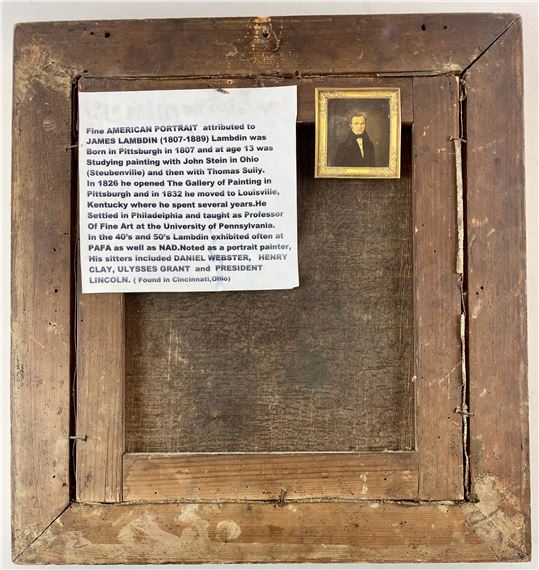 Fine AMERICAN PORTRAIT attributed to
JAMES LAMBDIN (1807-1889) Lambdin was
Born in Pittsburgh in 1807 and at age 13 was
Studying painting with John Stein in Ohio
(Steubenville) and then with Thomas Sully.
In 1826 he opened The Gallery of Painting in
Pittsburgh and in 1832 he moved to Louisville,
Kentucky where he spent several years.He
Settled in Philadelphia and taught as Professor
Of Fine Art at the University of Pennsylvania.
In the 40's and 50's Lambdin exhibited often at
PAFA as well as NAD.Noted as a portrait painter,
His sitters included DANIEL WEBSTER, HENRY
CLAY, ULYSSES GRANT and PRESIDENT
LINCOLN. ( Found in Cincinnati,Ohio)